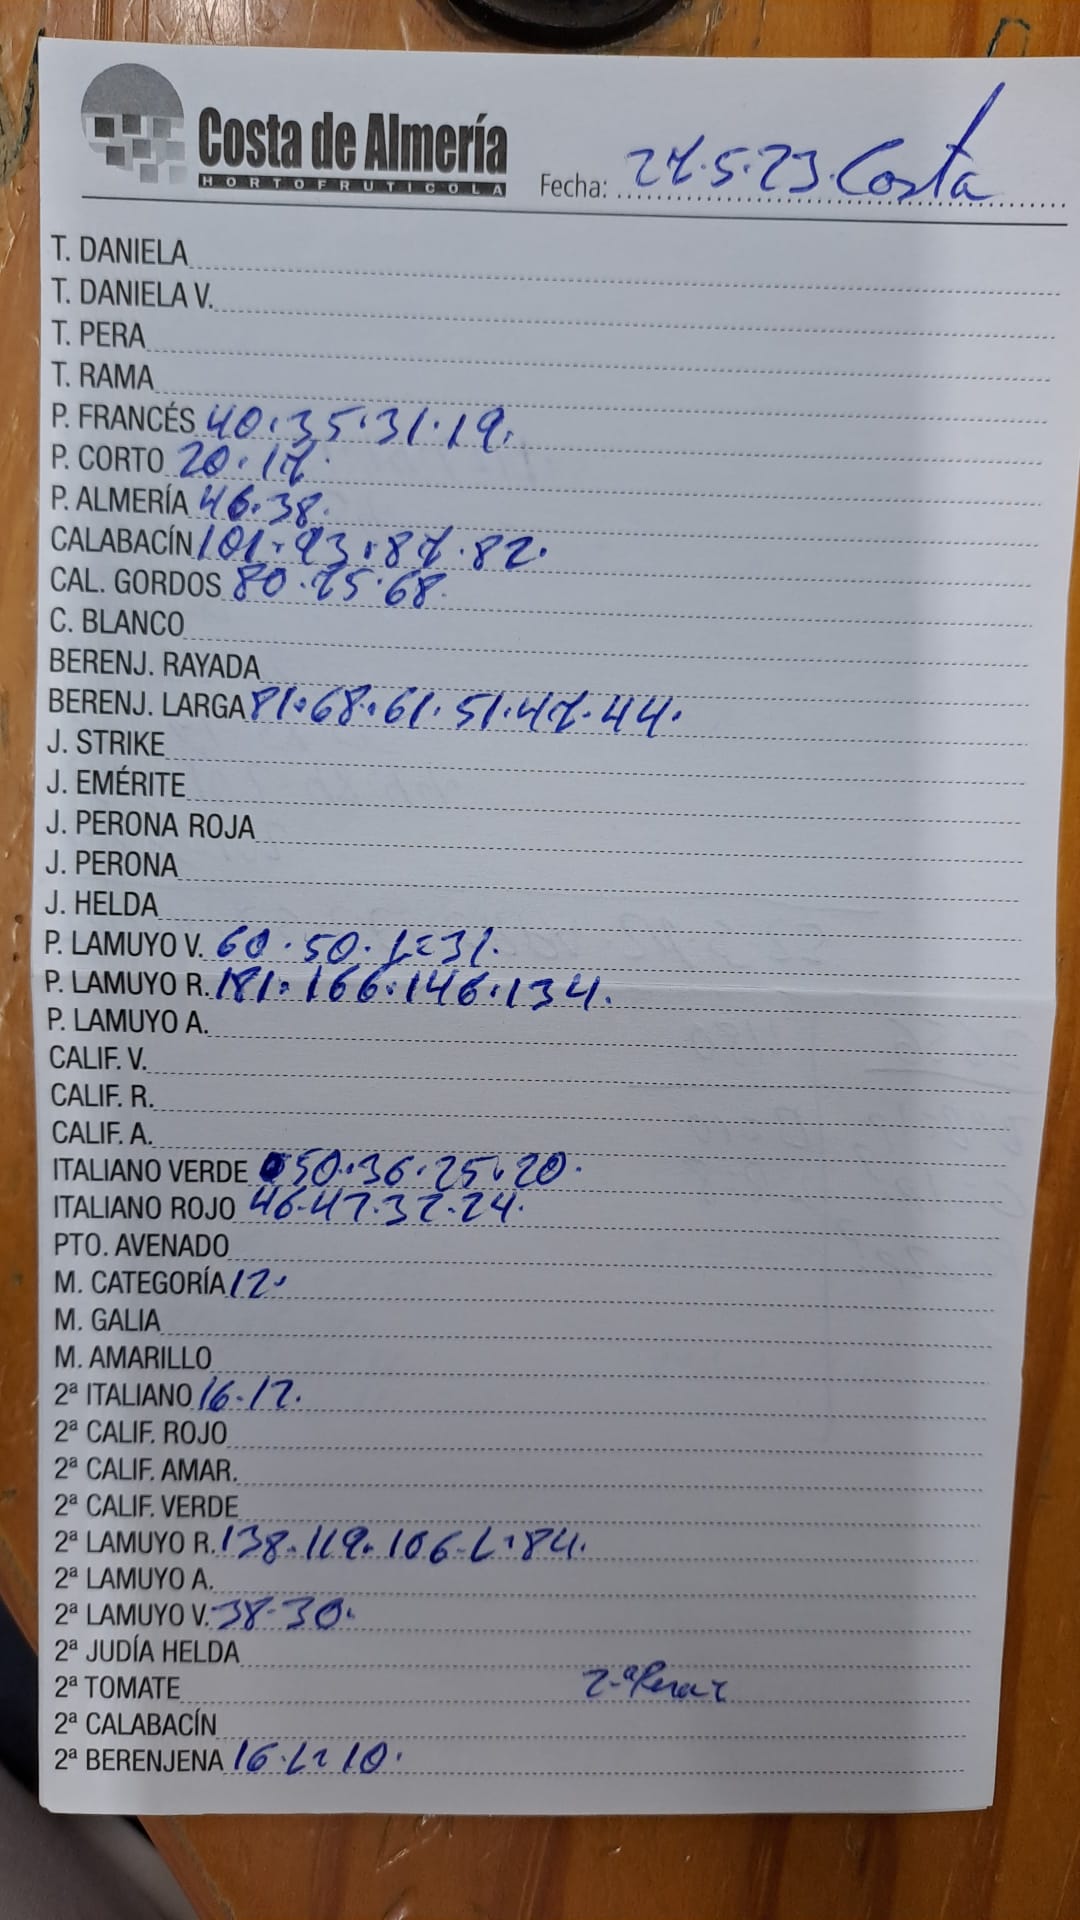 Costa de Almería
HORTOFRUTICOLA
Fecha: 27.5.23. Costa
T. DANIELA
T. DANIELA V.
T. PERA
T. RAMA
P. FRANCÉS 40.35.31.19.
P. CORTO 20.17.
P. ALMERÍA 46.38.
CALABACÍN 101.93.87.82.
CAL. GORDOS 80.75.68.
C. BLANCO
BERENJ. RAYADA
BERENJ. LARGA 81.68.61.51.47.44.
J. STRIKE
J. EMÉRITE
J. PERONA ROJA
J. PERONA
J. HELDA
P. LAMUYO V. 60.50.L=31.
P. LAMUYO R. 181.166.146.134.
P. LAMUYO A.
CALIF. V.
CALIF. R.
CALIF. A.
ITALIANO VERDE 50.36.25.20.
ITALIANO ROJO 46-42.32-24.
PTO. AVENADO
M. CATEGORÍA 12.
M. GALIA
M. AMARILLO
2ª ITALIANO 16-12.
2ª CALIF. ROJO
2ª CALIF. AMAR.
2ª CALIF. VERDE
2ª LAMUYO R. 138.119.106-L.84.
2ª LAMUYO A.
2ª LAMUYO V. 38-30.
2ª JUDÍA HELDA
2ª TOMATE
2ª CALABACÍN
2ª BERENJENA 16.L=10.